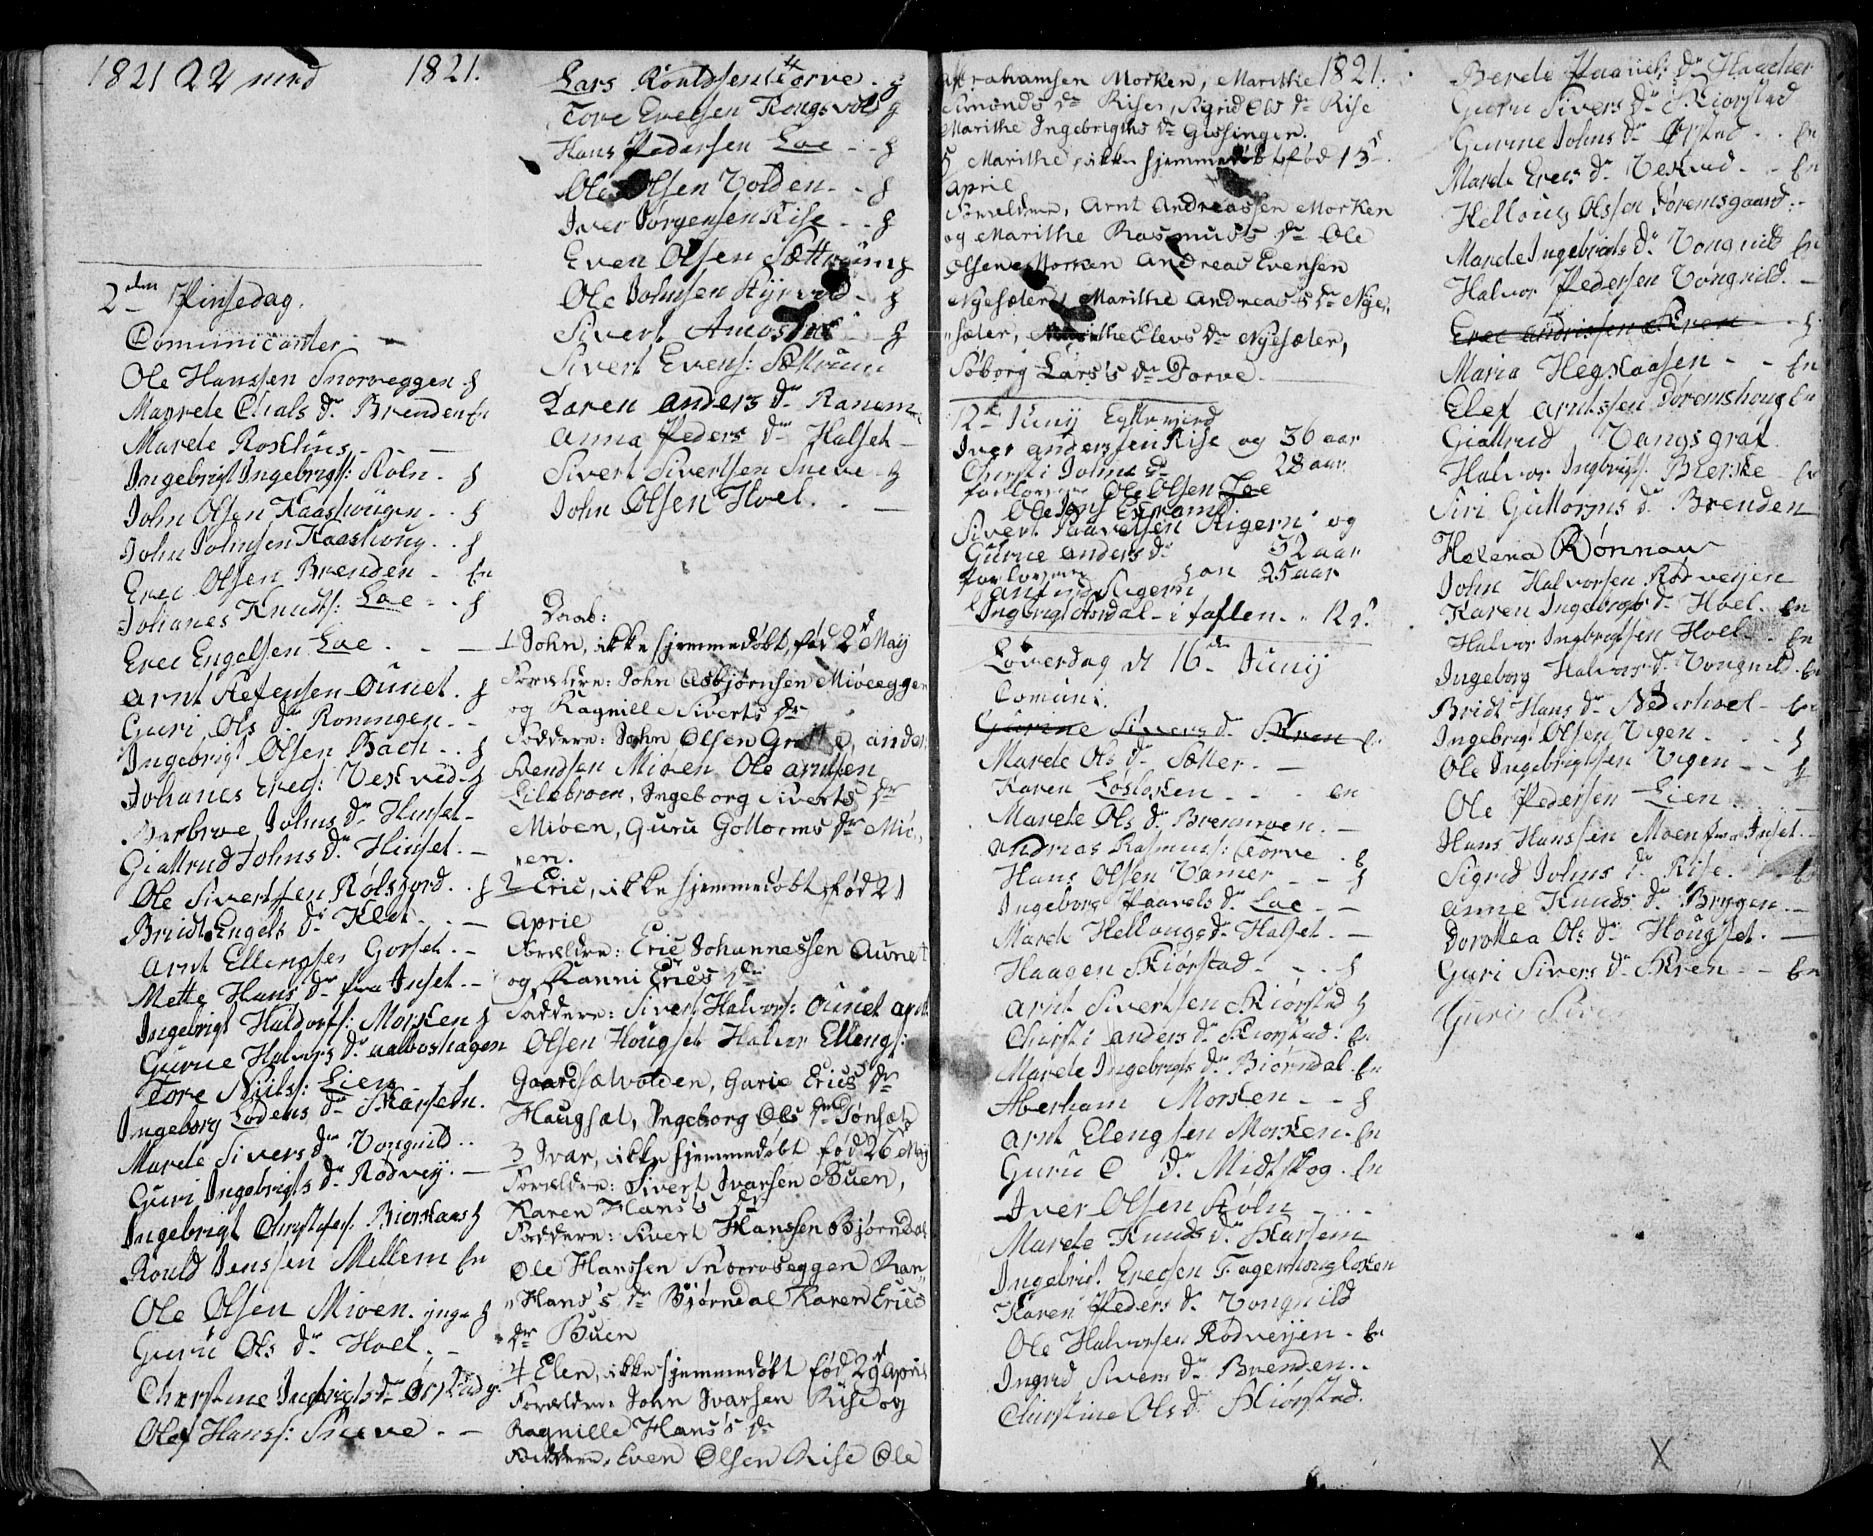 1821 22 1821.
2den Pinsedag.
Comunicanter
Ole Hanssen Snorveggen
Magrete Ols Dr Brenden En
Marete
Ingebrigt Ingebrigts: Roln
John Olsen Kaashougen
John Johnsen Kaashoug
Erec Olsen Brenden En
Johanes Knuds: Loe
Erec Engelsen Loe
Arnt Stefensen Ounet
Guri Ols Dr Roningen
Ingebrigt Olsen Bach
Johanes Erecs: Vekved
Barbroe Johns Dr Hinset
Giattrud Johns Dr Hinset
Ole Sivertsen
Bridt Engels Dr Klet
Arnt Ellengsen Gorset
Mette Hans Dr fra Inset
Ingebrigt Haldors: Morken
Gurue Halvors Dr Aalboshagen
Tore Niils: Lien
Ingeborg Lodens Dr Skarsem
Marete Sivers Dr Vongnild
Guri Ingebrigts Dr Rodvej
Ingebrigt Christofers: Bierkaas
Rould Jenssen Mellem En
Ole Olsen Mioen. ynge
Guru Ols Dr Hoel
Christine Ingbrigts Dr
Olef Hans: Sneve
Lars Roaldssen Torve
Tore Evensen Kongsvold
Hans Pedersen Loe
Ole Olsen Volden
Iver Jorgensen Rise
Even Olsen Sættrum
Ole Johnsen
Sivert Amos
Sivert Evens: Sættrum
Karen Anders Dr Ranem
Anna Peders Dr Halset
Sivert Sivertsen Sneve
John Olsen Hoel
Daab:
1 John, ikke hjemmedøbt, fød 2d Maij
Forældre: John Asbjørnsen Mioeeggen
og Ragnille Siverts Dr
Faddere: John Olsen, Anders
Svendsen Mioen Ole Arntsen
Lilebroen, Ingeborg Siverts Dr
Mioen, Guru Gottorms Dr Mio„
„en.
2 Eric, ikke hjemmedøbt fød 21
April
Forældre: Eric Johannessen Aunet
og Ranni Erics Dr
Faddere: Sivert Halvors: Ounet Arnt
Olsen Hougset Halvor Ellengs:
Gaardsætvolden, Gurie Erics Dr
Haugsæt, Ingeborg Ols Dr Tønsæt
3 Ivar, ikke hjemmedøbt fød 26 Maij
Forældre: Sivert Ivarsen Buen,
Karen Hans's Dr
Faddere: Sivert Hanssen Bjørndal
Ole Hanssen Snorroseggen Ran„
„Hans's Dr Bjørndal Karen Erics
Dr Buen
4 Elen, ikke hjemmedøbt fød 29 April
Forældre: John Ivarsen Rise og
Ragnille Hans's Dr
Faddere: Even Olsen Rise Ole
Abrahamsen Morken, Marithe 1821.
Simonds Dr Rise, Sigrid Ols Dr Rise
Marithe Ingebrigths Dr Gissinger.
5 Marithe, ikke hjemmedøbt fød 13
April
Forældre, Arnt Andreassen Morken
og Marithe Rasmus's Dr Ole
Olsen Morken Andreas Evensen
Nysæter, Marithe Andreas's Dr Nye„
„sæter, Marithe Elevs Dr Nyesæter,
Søborg Lars's Dr Dorve
12 Junij
Iver Anderssen Rise og 36 aar
Christi Johns Dr 28 aar
forlovere Ole Olsen Loe
Ole
Sivert Paavelsen Aigern og
Gurue Anders Dr 32 aar
forlovere 25 aar
Ingbrigt i taflen 12
Løverdag d 16de Junij
Comuni:
Gurue Sivers Dr Skren
Marete Ols Dr Sætter
Karen en
Marete Ols Dr
Andreas Rasmus: Torve
Hans Olsen Vamer
Ingeborg Paavels Dr Loe
Maret Hellougs Dr Halset
Haagen Skiørstad
Arnt Sivertsen Skiørstad
Christi Anders Dr Skiorstad En
Marete Ingebrigts Dr Biørndal En
Aberham Morken
Arnt Elengsen Morken En
Guru Dr Midtskog En
Iver Olsen Roln
Marete Knuds Dr Skarsem
Ingebrigt Erecsen Fagerhoug
Karen Peders Dr Vongnild
Ole Halvorsen Rodveyen En
Ingrid Sivers Dr Brenden
Christine Ols Dr Skiorstad.
Berete Dr
Guru Sivers Dr Skiorstad
Gurue Johns Dr Ørstad En
Marete Erecs Dr Vekved En
Helloug Olssen Døremsgaard
Marete Ingebrigts Dr Vongnild En
Halvor Pedersen Vongnild
Erec Andrissen Skren
Maria Hegskaasen En
Elef Arntssen Doremshoug En
Giattrud Vangsgrat
Halvor Ingbrigts:
Siri Guttorms Dr Brenden
Helena Rønnau
John Halvorsen Rodveyen
Karen Ingebrigts Dr Hoel En
Halvor Ingbrigtsen Hoel En
Ingeborg Halvors Dr Vongnild En
Bridt Hans Dr Nederhoel En
Ingebrigt Olsen Vegen
Ole Ingebrigtsen Vegen
Ole Pedersen Lien
Hans Hanssen Moen fra Inset
Sigrid Johns Dr Rise
Anne Knuds Dr Bryggen
Dorothea Ols Dr Hougset
Guri Sivers Dr Skren En
Guri Siver
X